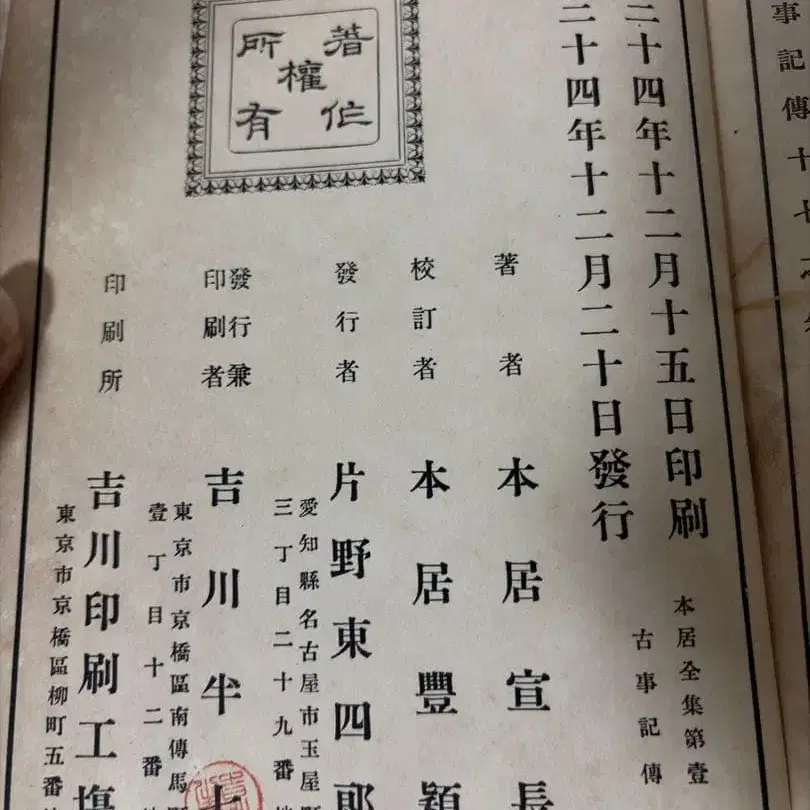 事記傳十七之
二十四年十二月十五日印刷
二十四年十二月二十日發行
本居全集第壹
古事記傳
著者 本居宣長
校訂者 本居豐穎
發行者 片野東四郎
愛知縣名古屋市玉屋町
三丁目二十九番地
發行兼
印刷者
吉川半七
東京市京橋區南傳馬町
壹丁目十二番地
印刷所 吉川印刷工塲
東京市京橋區柳町五番地
著作權所有